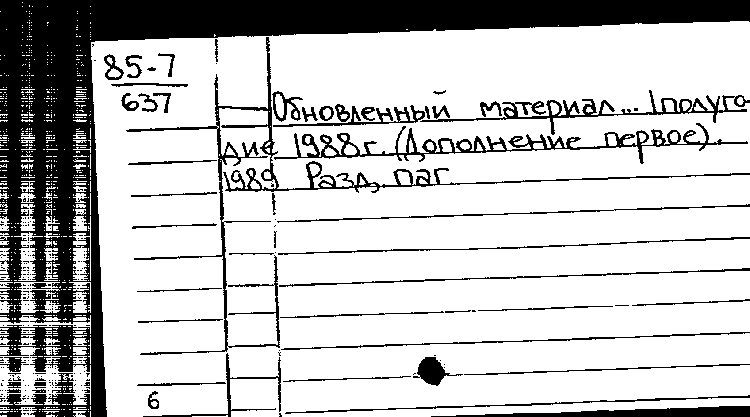 85-7
637
Обновленный материал... I полуго-
дие 1988 г. (Дополнение первое).
1989 Разд. паг
6